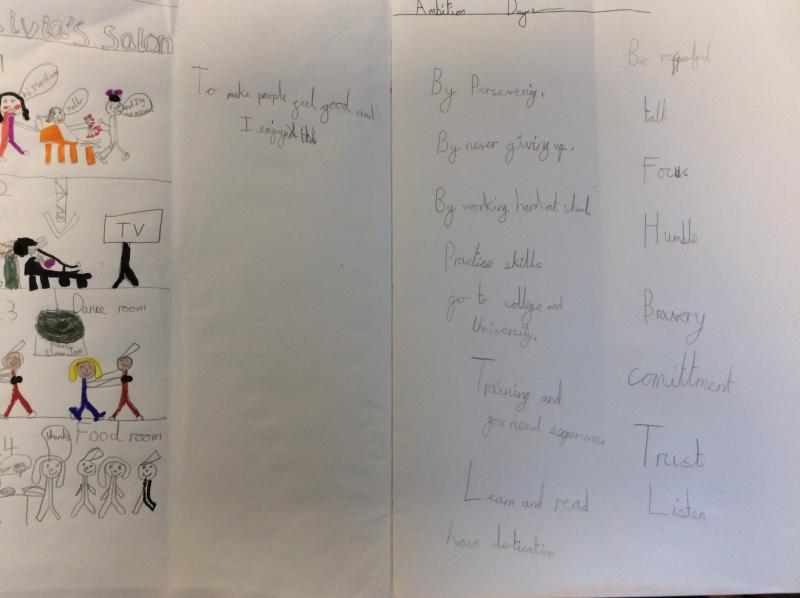 ivia's Salon
1
2
TV
3 Dance room
4 Food room
thanks
To make people feel good and
I enjoyed this
Ambition Day
By Persevering.
By never giving up.
By working hard at school
Practise skills
go to college and
University.
Training and
you need experience.
Learn and read
have detication
Be
talk
Focus
Humble
Bravery
comittment
Trust
Listen